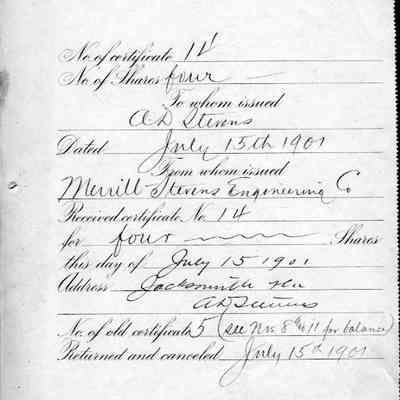 No. of certificate 14
No. of Shares four
To whom issued
A D Stevens
Dated July 15th 1901
From whom issued
Merrill-Stevens Engineering Co
Received certificate No. 14
for four Shares
this day of July 15 1901
Address Jacksonville Fla
A D Stevens
No. of old certificate 5 (see Nos. 8 to 11 for balance)
Returned and canceled July 15th 1901